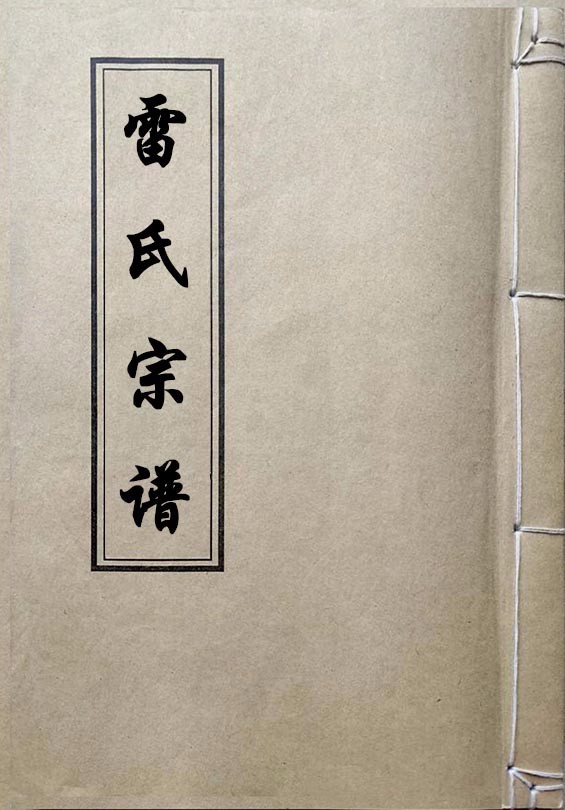 雷氏宗谱